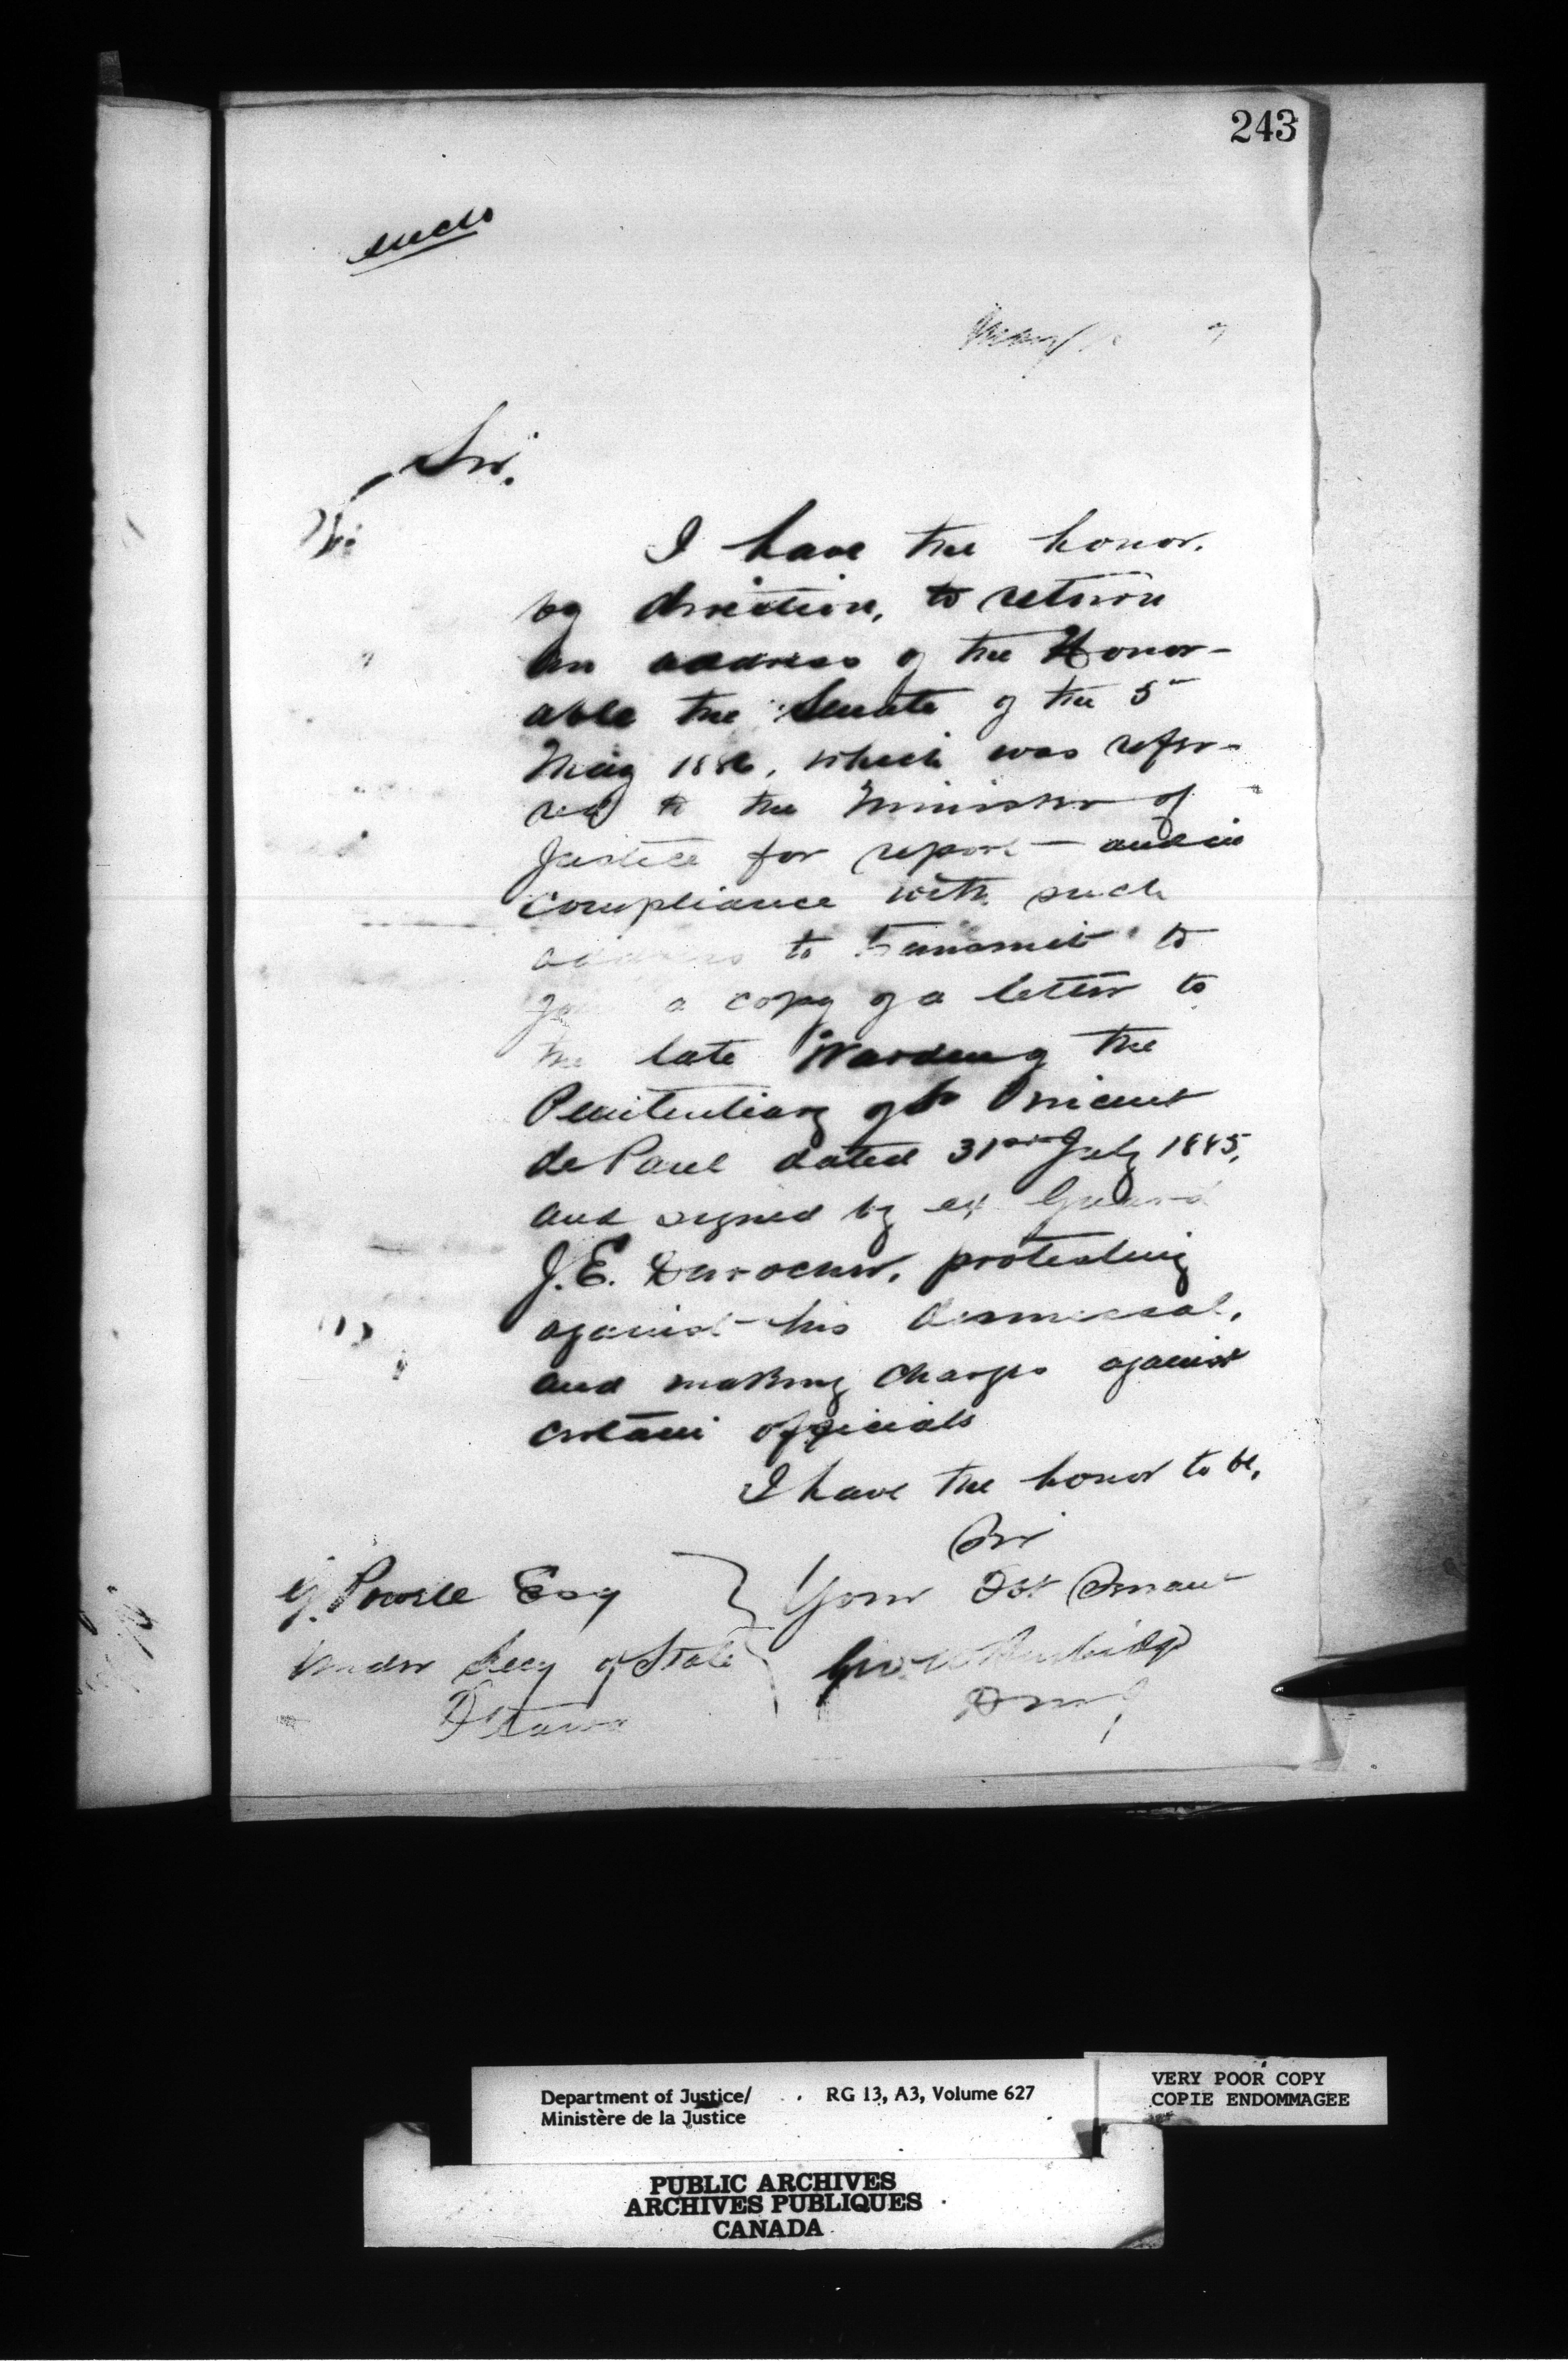 243
encls
May
Sir,
I have the honor,
by direction, to return
an address of the Honor-
able the Senate of the 5th
May 1886, which was refer-
red to the Minister of
Justice for report – and in
compliance with such
address to transmit to
you a copy of a letter to
the late Warden of the
Penitentiary of St Vincent
de Paul dated 31st July 1885,
and signed by ex Guard
J.E. Durocher, protesting
against his dismissal,
and making charges against
certain officials
I have the honor to be,
Sir
Your Obt Servant
G. Powell Esq
Under Secy of State
Ottawa
Geo. W. Burbidge
D M J
Department of Justice/
Ministère de la Justice
RG 13, A3, Volume 627
VERY POOR COPY
COPIE ENDOMMAGEE
PUBLIC ARCHIVES
ARCHIVES PUBLIQUES
CANADA